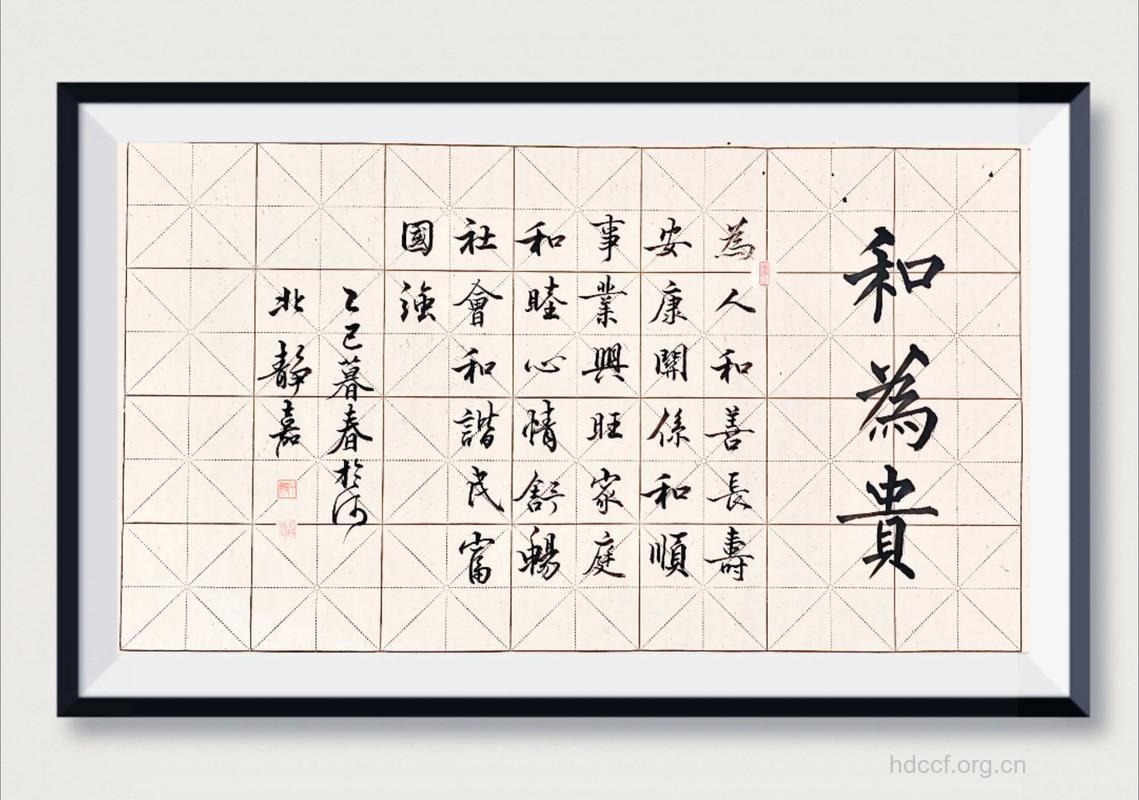 和為貴
為人和善長壽
安康關係和順
事業興旺家庭
和睦心情舒暢
社會和諧民富
國強
乙巳暮春於河
北靜嘉
hdccf.org.cn